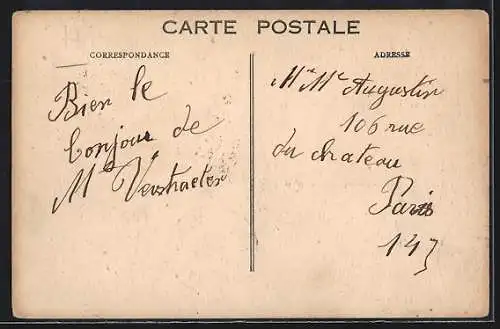 CARTE POSTALE
CORRESPONDANCE
Bien le
bonjour de
Me Verstraeten
ADRESSE
Mr Me Augustin
106 rue
du chateau
Paris
14